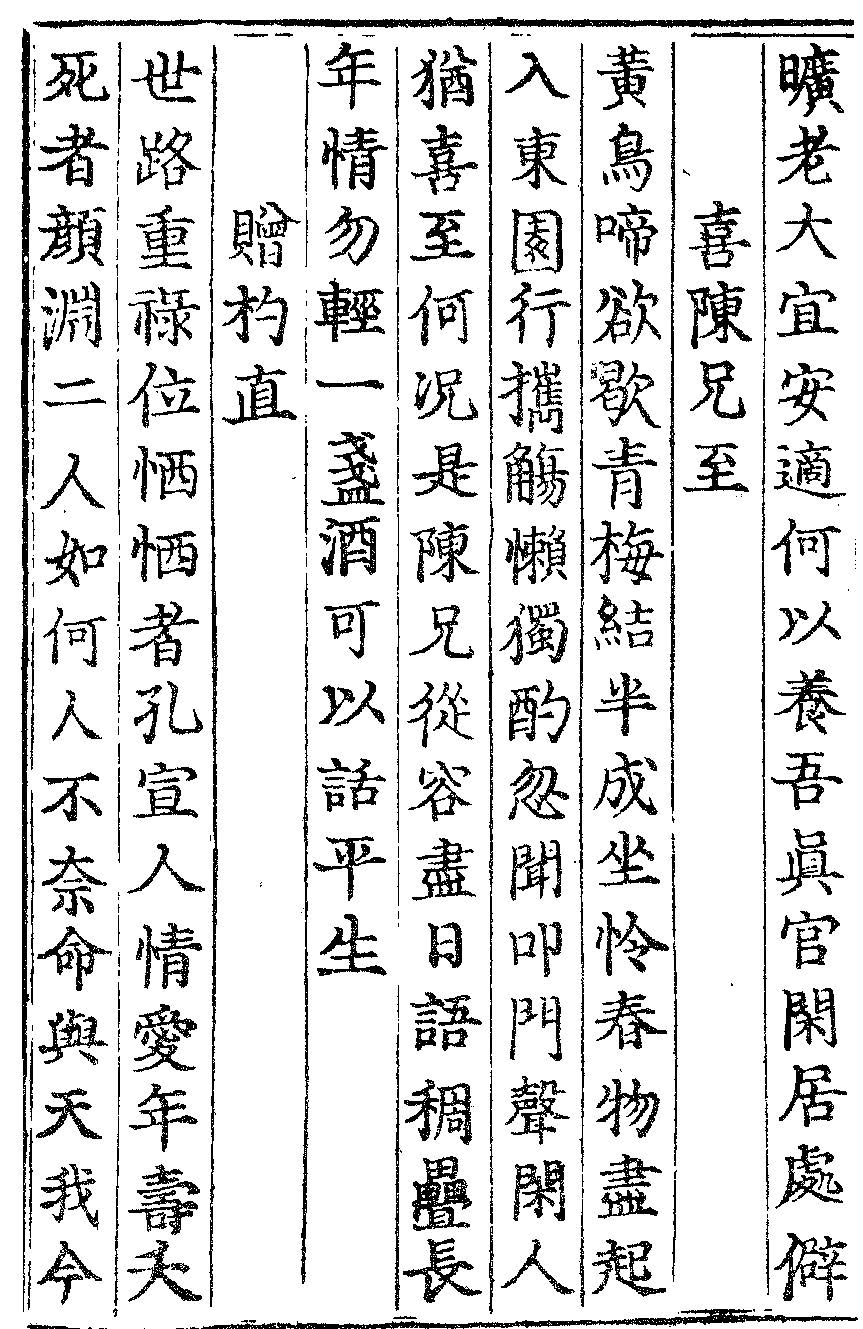 曠老大宜安適何以養吾眞官閑居處僻
喜陳兄至
黃鳥啼欲歇青梅結半成坐怜春物盡起
入東園行攜觴懶獨酌忽聞叩門聲閑人
猶喜至何况是陳兄從容盡日語稠疊長
年情勿輕一盞酒可以話平生
贈杓直
世路重祿位恓恓者孔宣人情愛年壽夭
死者顔淵二人如何人不奈命與天我今